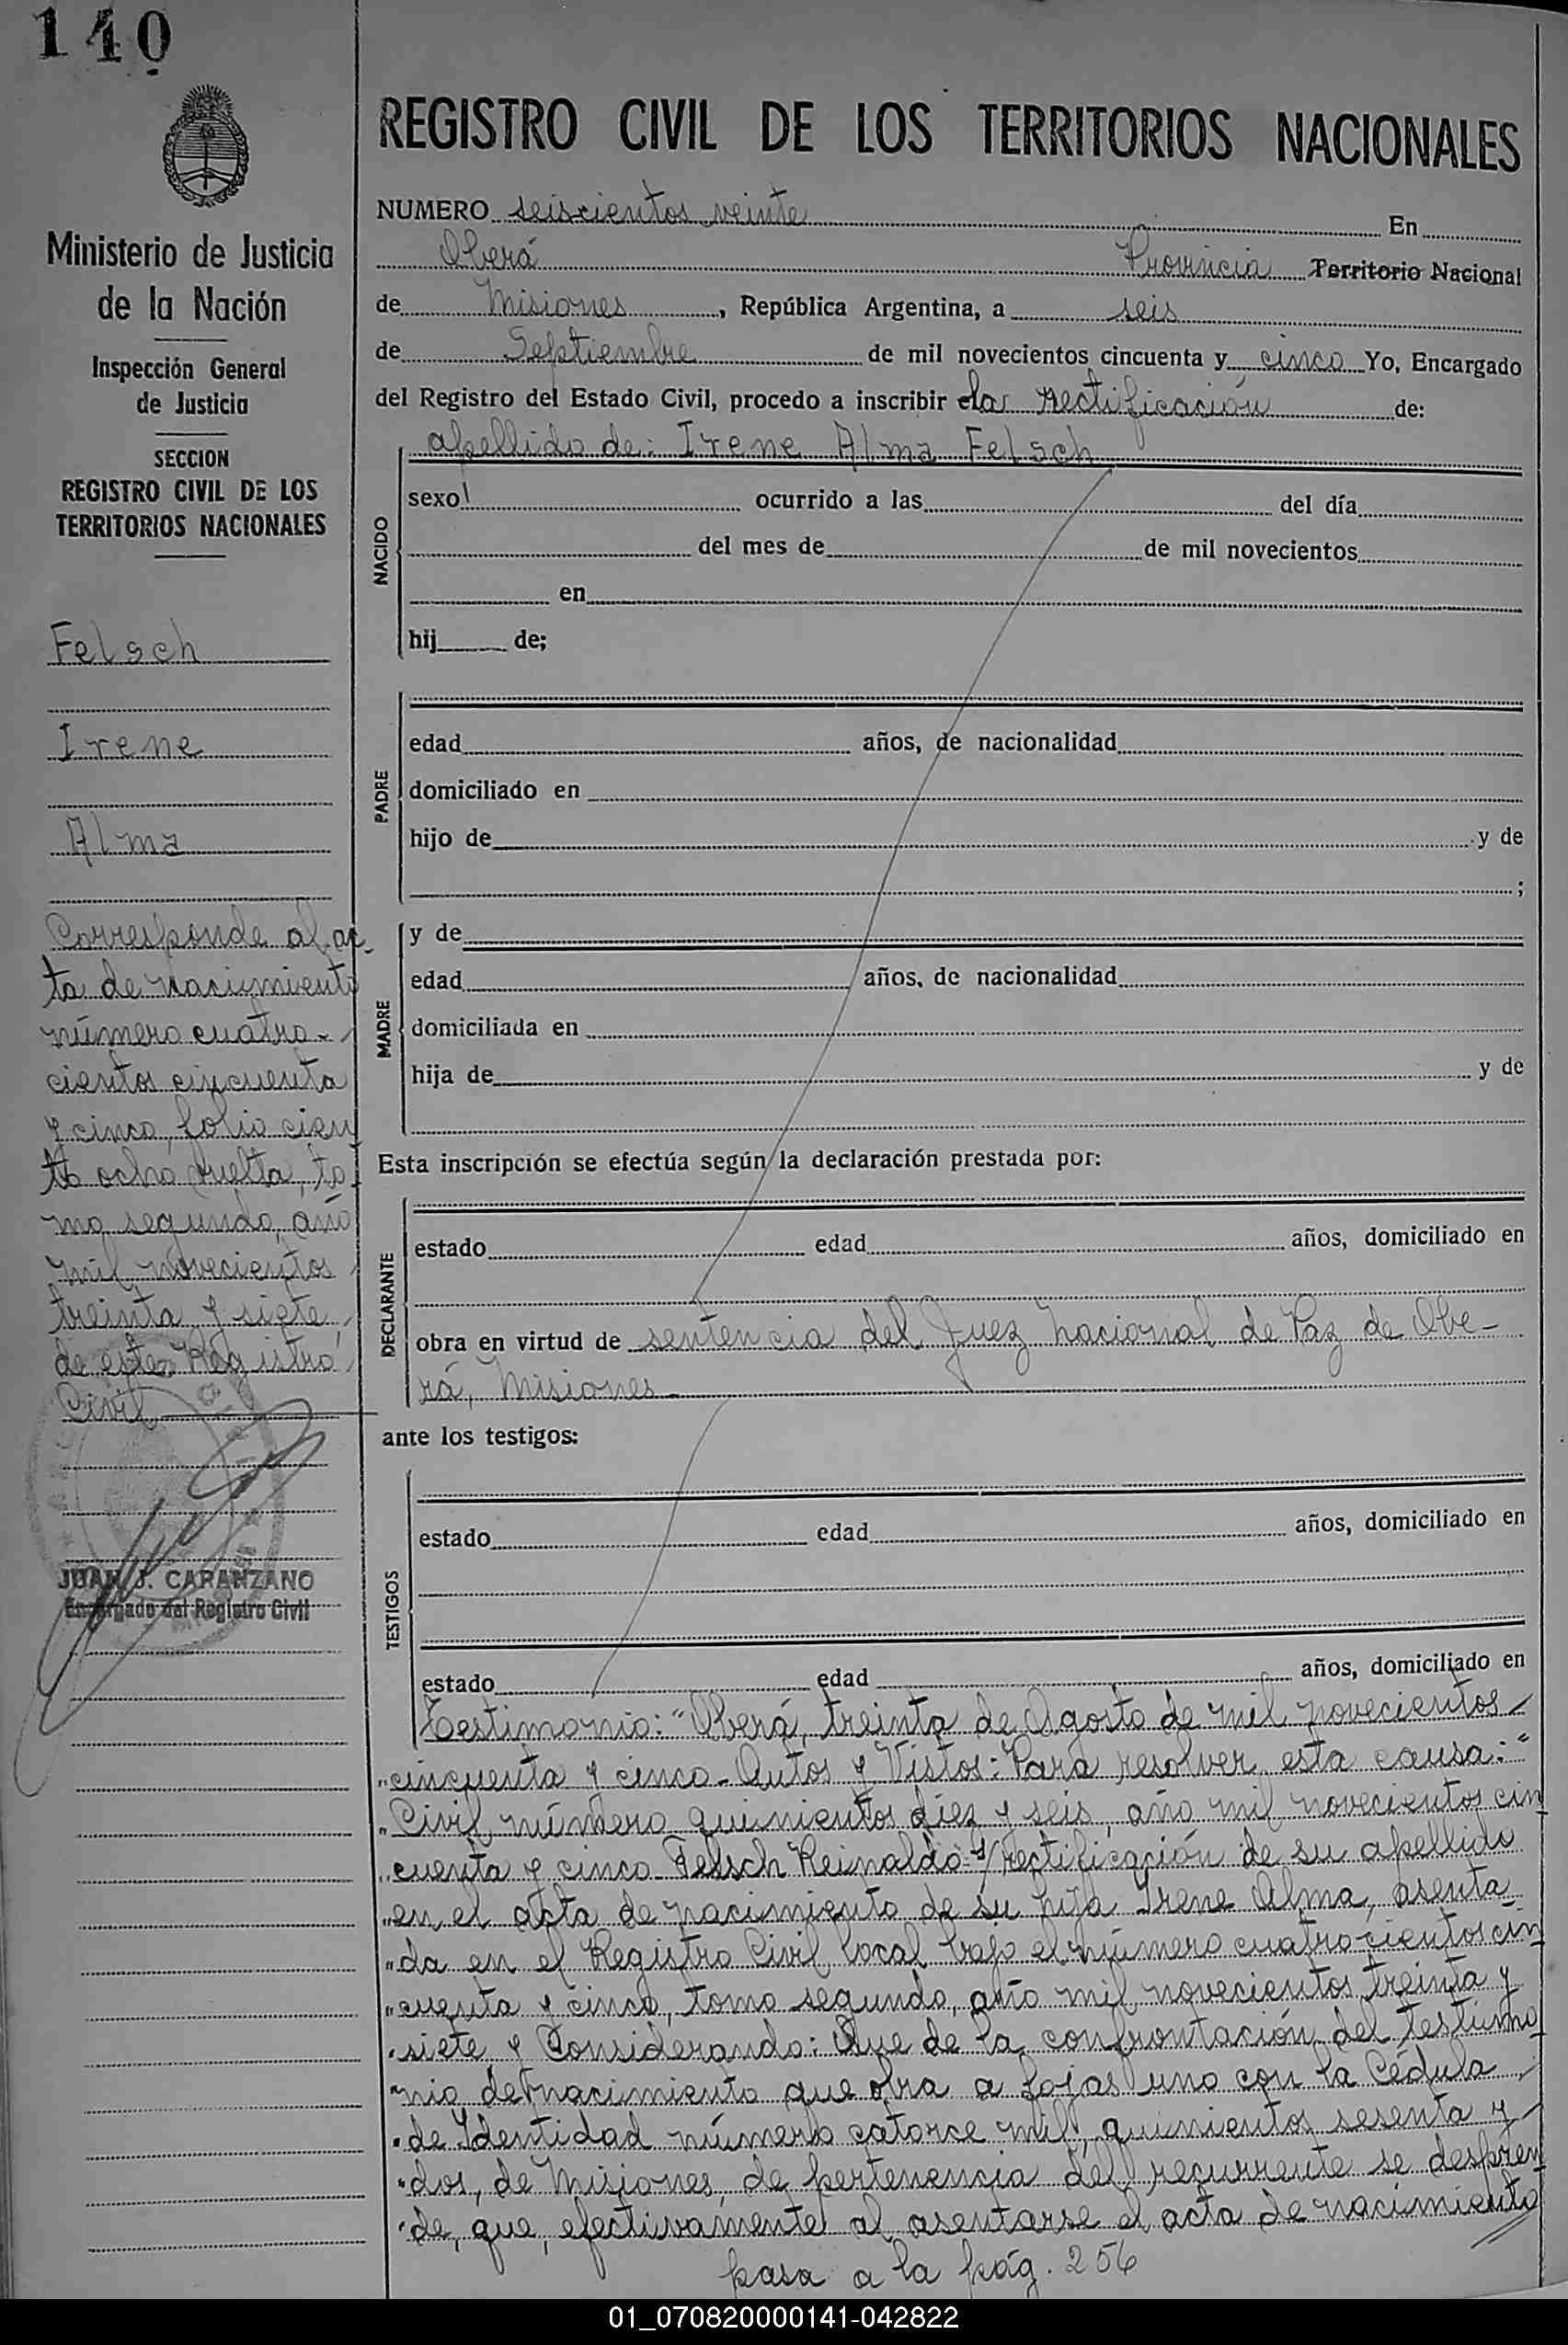 140
Ministerio de Justicia
de la Nación
Inspección General
de Justicia
SECCION
REGISTRO CIVIL DE LOS
TERRITORIOS NACIONALES
Felsch
Irene
Alma
Corresponde al ac-
ta de nacimiento
número cuatro-
cientos cincuenta
y cinco, folio cien
to ocho vuelta, to-
mo segundo, año
mil novecientos
treinta y siete
de este Registro
Civil
JUAN J. CARANZANO
Encargado del Registro Civil
REGISTRO CIVIL DE LOS TERRITORIOS NACIONALES
NUMERO seiscientos veinte En
Oberá Provincia Territorio Nacional
de Misiones, República Argentina, a seis
de Septiembre de mil novecientos cincuenta y cinco Yo, Encargado
del Registro del Estado Civil, procedo a inscribir la rectificación de:
apellido de: Irene Alma Felsch
NACIDO
sexo ocurrido a las del día
del mes de de mil novecientos
en
hij de;
PADRE
edad años, de nacionalidad
domiciliado en
hijo de y de
;
MADRE
y de
edad años, de nacionalidad
domiciliada en
hija de y de
Esta inscripción se efectúa según la declaración prestada por:
DECLARANTE
estado edad años, domiciliado en
obra en virtud de sentencia del Juez Nacional de Paz de Obe-
rá, Misiones
ante los testigos:
TESTIGOS
estado edad años, domiciliado en
estado edad años, domiciliado en
Testimonio: "Oberá, treinta de Agosto de mil novecientos
"cincuenta y cinco - Autos y Vistos: Para resolver esta causa:"
"Civil número quinientos diez y seis, año mil novecientos cin
"cuenta y cinco Felsch Reinaldo s/rectificación de su apellido
"en el acta de nacimiento de su hija Irene Alma, asenta
"da en el Registro Civil local bajo el número cuatrocientos cin
"cuenta y cinco, tomo segundo, año mil novecientos treinta y
"siete y Considerando: Que de la confrontación del testimo
"nio de nacimiento que obra a fojas uno con la Cédula
"de Identidad número catorce mil quinientos sesenta y
"dos, de Misiones, de pertenencia del recurrente se despren
"de, que, efectivamente al asentarse el acta de nacimiento
pasa a la pág. 256
01_070820000141-042822